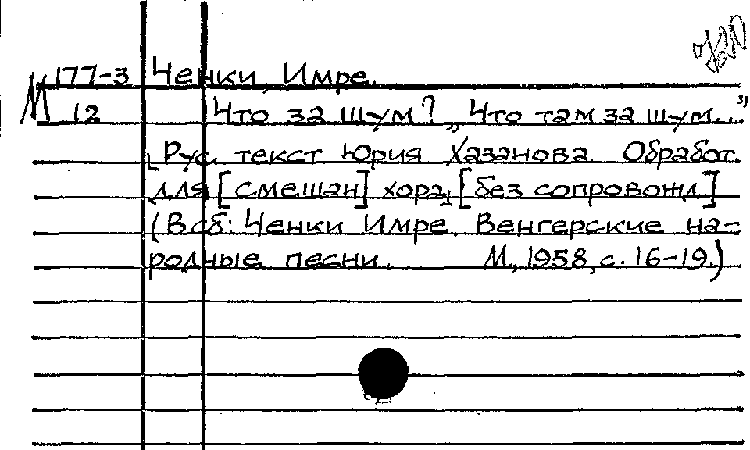 М 177-3 Ченки, Имре.
12 Что за шум? „Что там за шум..."
Рус. текст Юрия Хазанова. Обработ.
для [смешан] хора, [без сопровожд]
(В сб: Ченки Имре. Венгерские на-
родные песни. М, 1958, с. 16-19.)